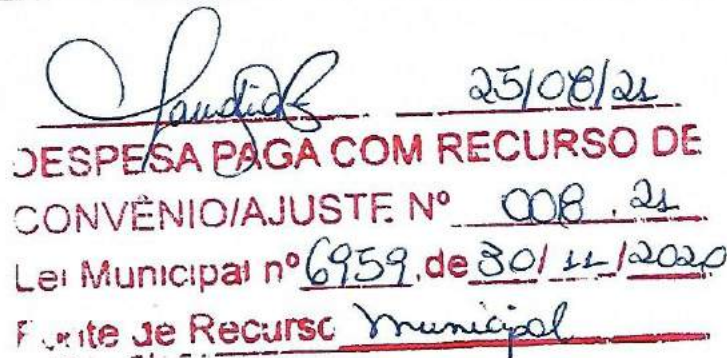 25/08/21
DESPESA PAGA COM RECURSO DE
CONVÊNIO/AJUSTE Nº 008.21
Lei Municipal nº 6959, de 30/11/2020
Fonte de Recurso Municipal